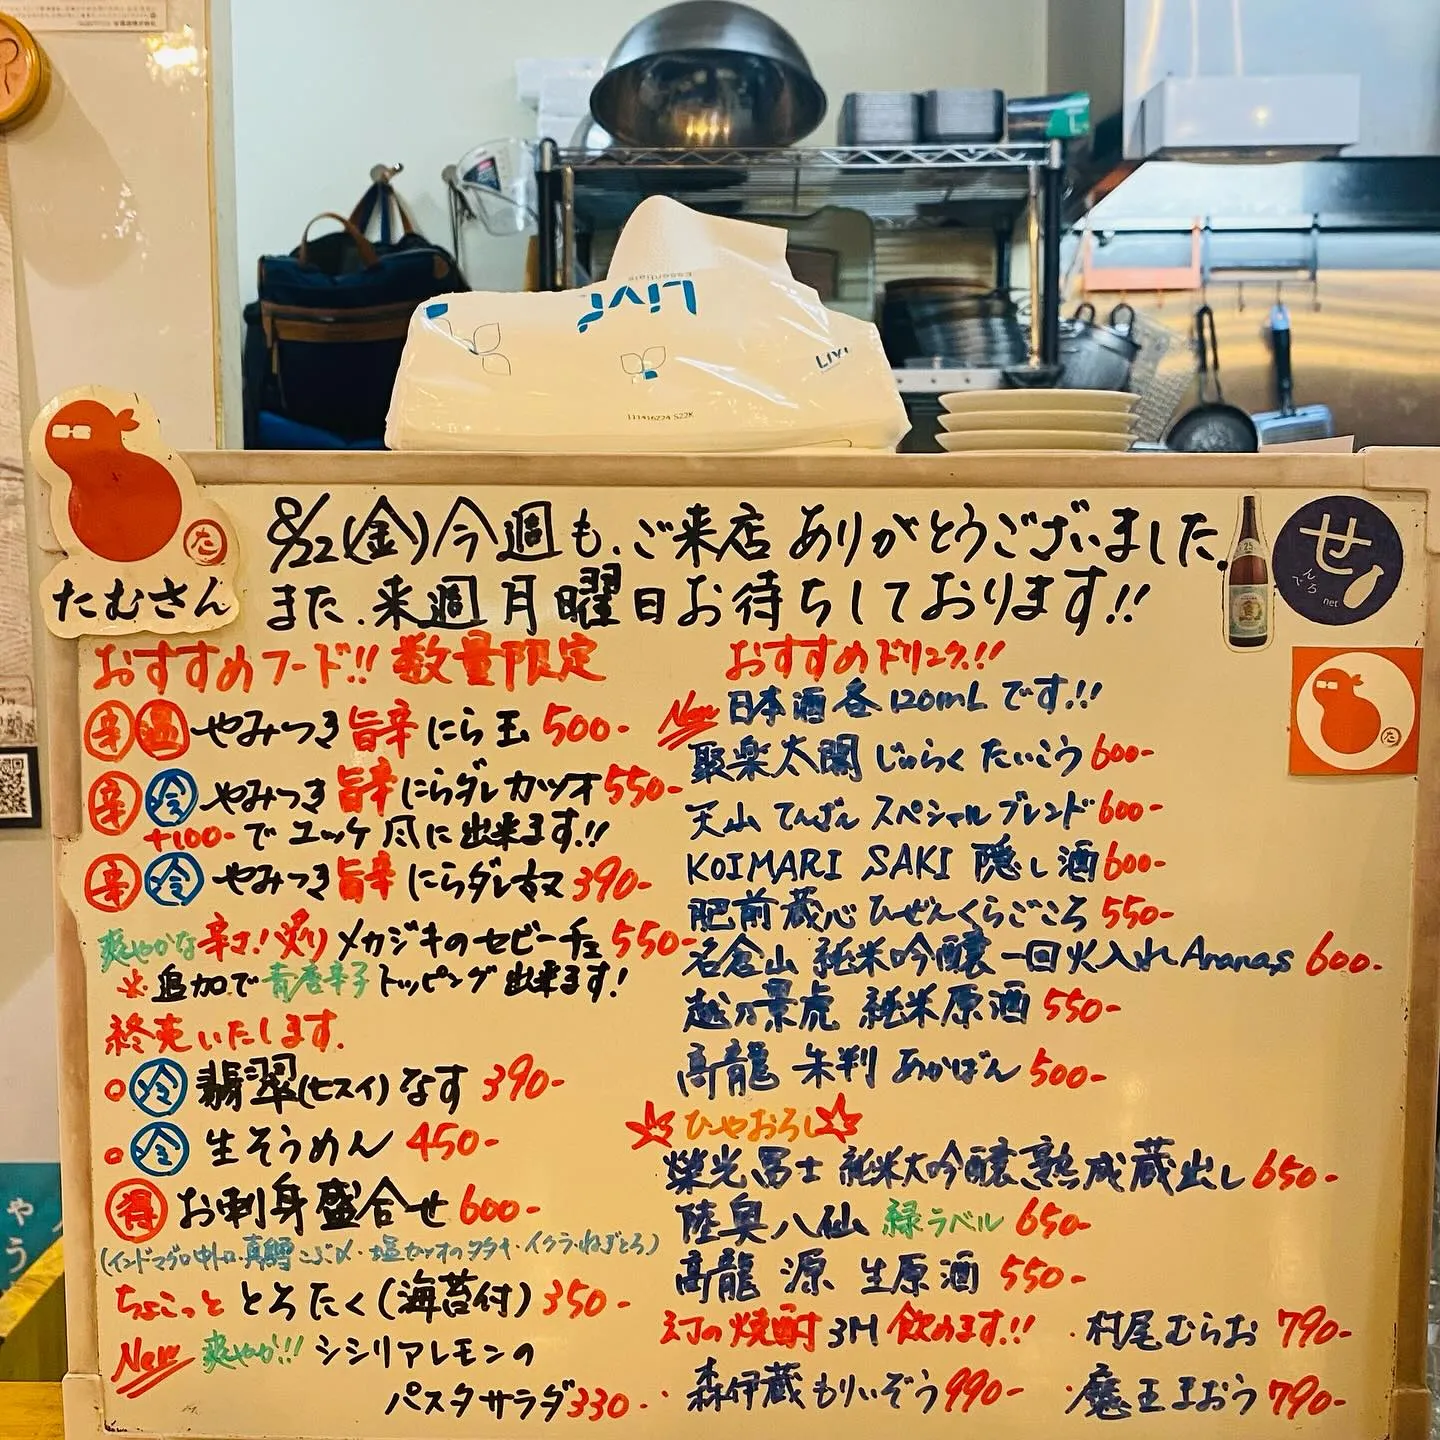 Livi
Essentials
LIVI
111416224 S22K
たむさん
た
せ
でんろ
net
8/22(金)今週も、ご来店ありがとうございました。
また、来週月曜日お待ちしております!!
おすすめフード!! 数量限定
辛 温 やみつき旨辛にら玉 500-
辛 冷 やみつき旨辛にらダレカツオ 550-
+100-でユッケ風に出来ます!!
辛 冷 やみつき旨辛にらダレ奴 390-
爽やかな辛さ!炙りメカジキのセビーチェ 550-
※追加で青唐辛子トッピング出来ます!
終売いたします。
○冷 翡翠(ヒスイ)なす 390-
○冷 生そうめん 450-
得 お刺身盛合せ 600-
(インドマグロ中トロ・真鯛こぶ〆・塩カツオのタタキ・イクラ・ねぎとろ)
ちょこっと とろたく(海苔付) 350-
New 爽やか!!! シシリアレモンの
パスタサラダ 330-
おすすめドリンク!!
日本酒各120mLです!!
New 聚楽太閤 じゅらくたいこう 600-
天山 てんざん スペシャルブレンド 600-
KOIMARI SAKI 隠し酒 600-
肥前蔵心 ひぜんくらごころ 550-
名倉山 純米吟醸一回火入れ Ananas 600-
越乃景虎 純米原酒 550-
高龍 朱判 あかばん 500-
☆ひやおろし☆
榮光冨士 純米大吟醸熟成蔵出し 650-
陸奥八仙 緑ラベル 650-
高龍 源 生原酒 550-
幻の焼酎3M飲めます!!
・村尾むらお 790-
・森伊蔵もりいぞう 990-
・魔王まおう 790-